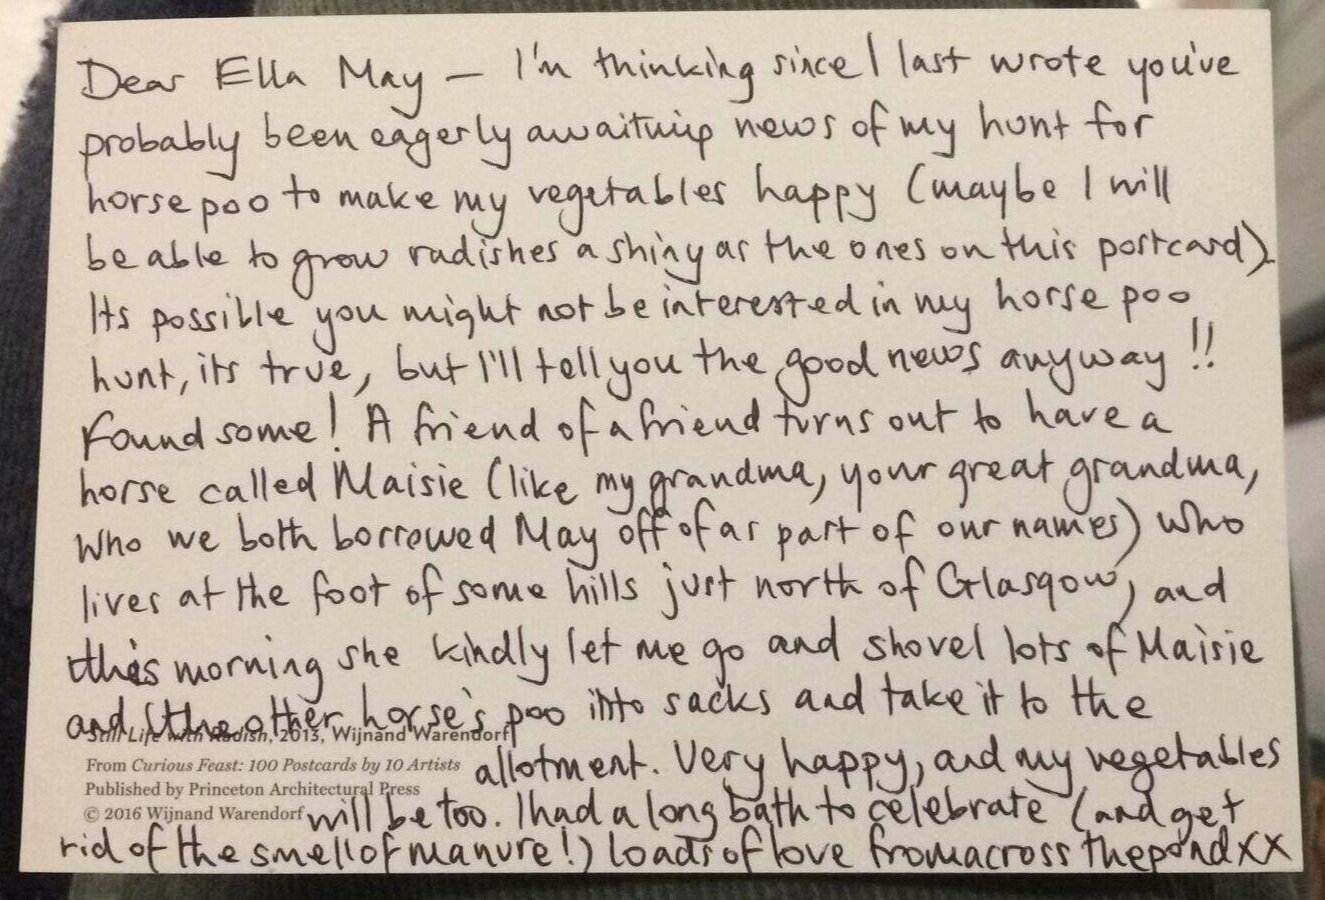 Dear Ella May — I'm thinking since I last wrote you've
probably been eagerly awaiting news of my hunt for
horse poo to make my vegetables happy (maybe I will
be able to grow radishes a shiny as the ones on this postcard).
Its possible you might not be interested in my horse poo
hunt, its true, but I'll tell you the good news anyway!!
Found some! A friend of a friend turns out to have a
horse called Maisie (like my grandma, your great grandma,
who we both borrowed May off of as part of our names) who
lives at the foot of some hills just north of Glasgow, and
this morning she kindly let me go and shovel lots of Maisie
and the other horse's poo into sacks and take it to the
Still Life with Radish, 2013, Wijnand Warendorf
From Curious Feast: 100 Postcards by 10 Artists
allotment. Very happy, and my vegetables
Published by Princeton Architectural Press
© 2016 Wijnand Warendorf
will be too. I had a long bath to celebrate (and get
rid of the smell of manure!) Loads of love from across the pond xx